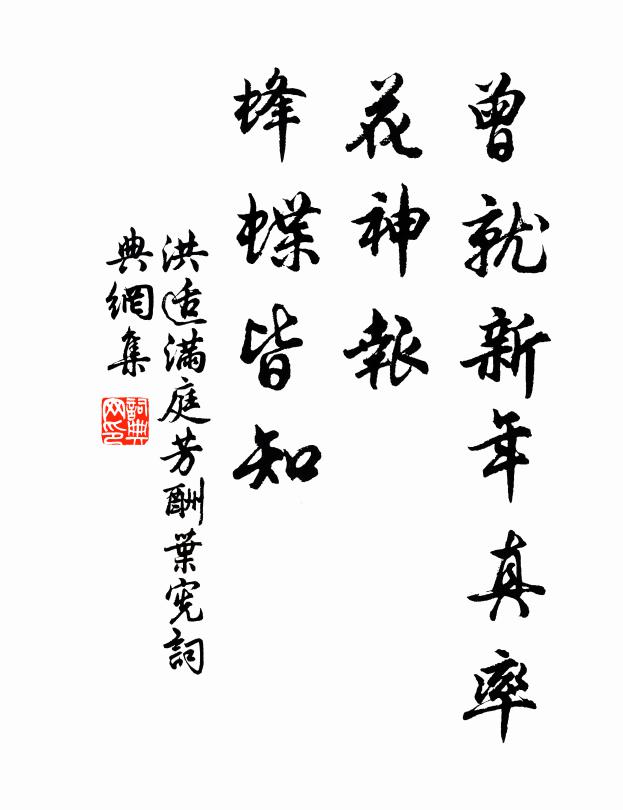 曾就新年真率
花神報
蜂蝶皆知
洪适滿庭芳酬葉憲詞
典網集
詞典網印